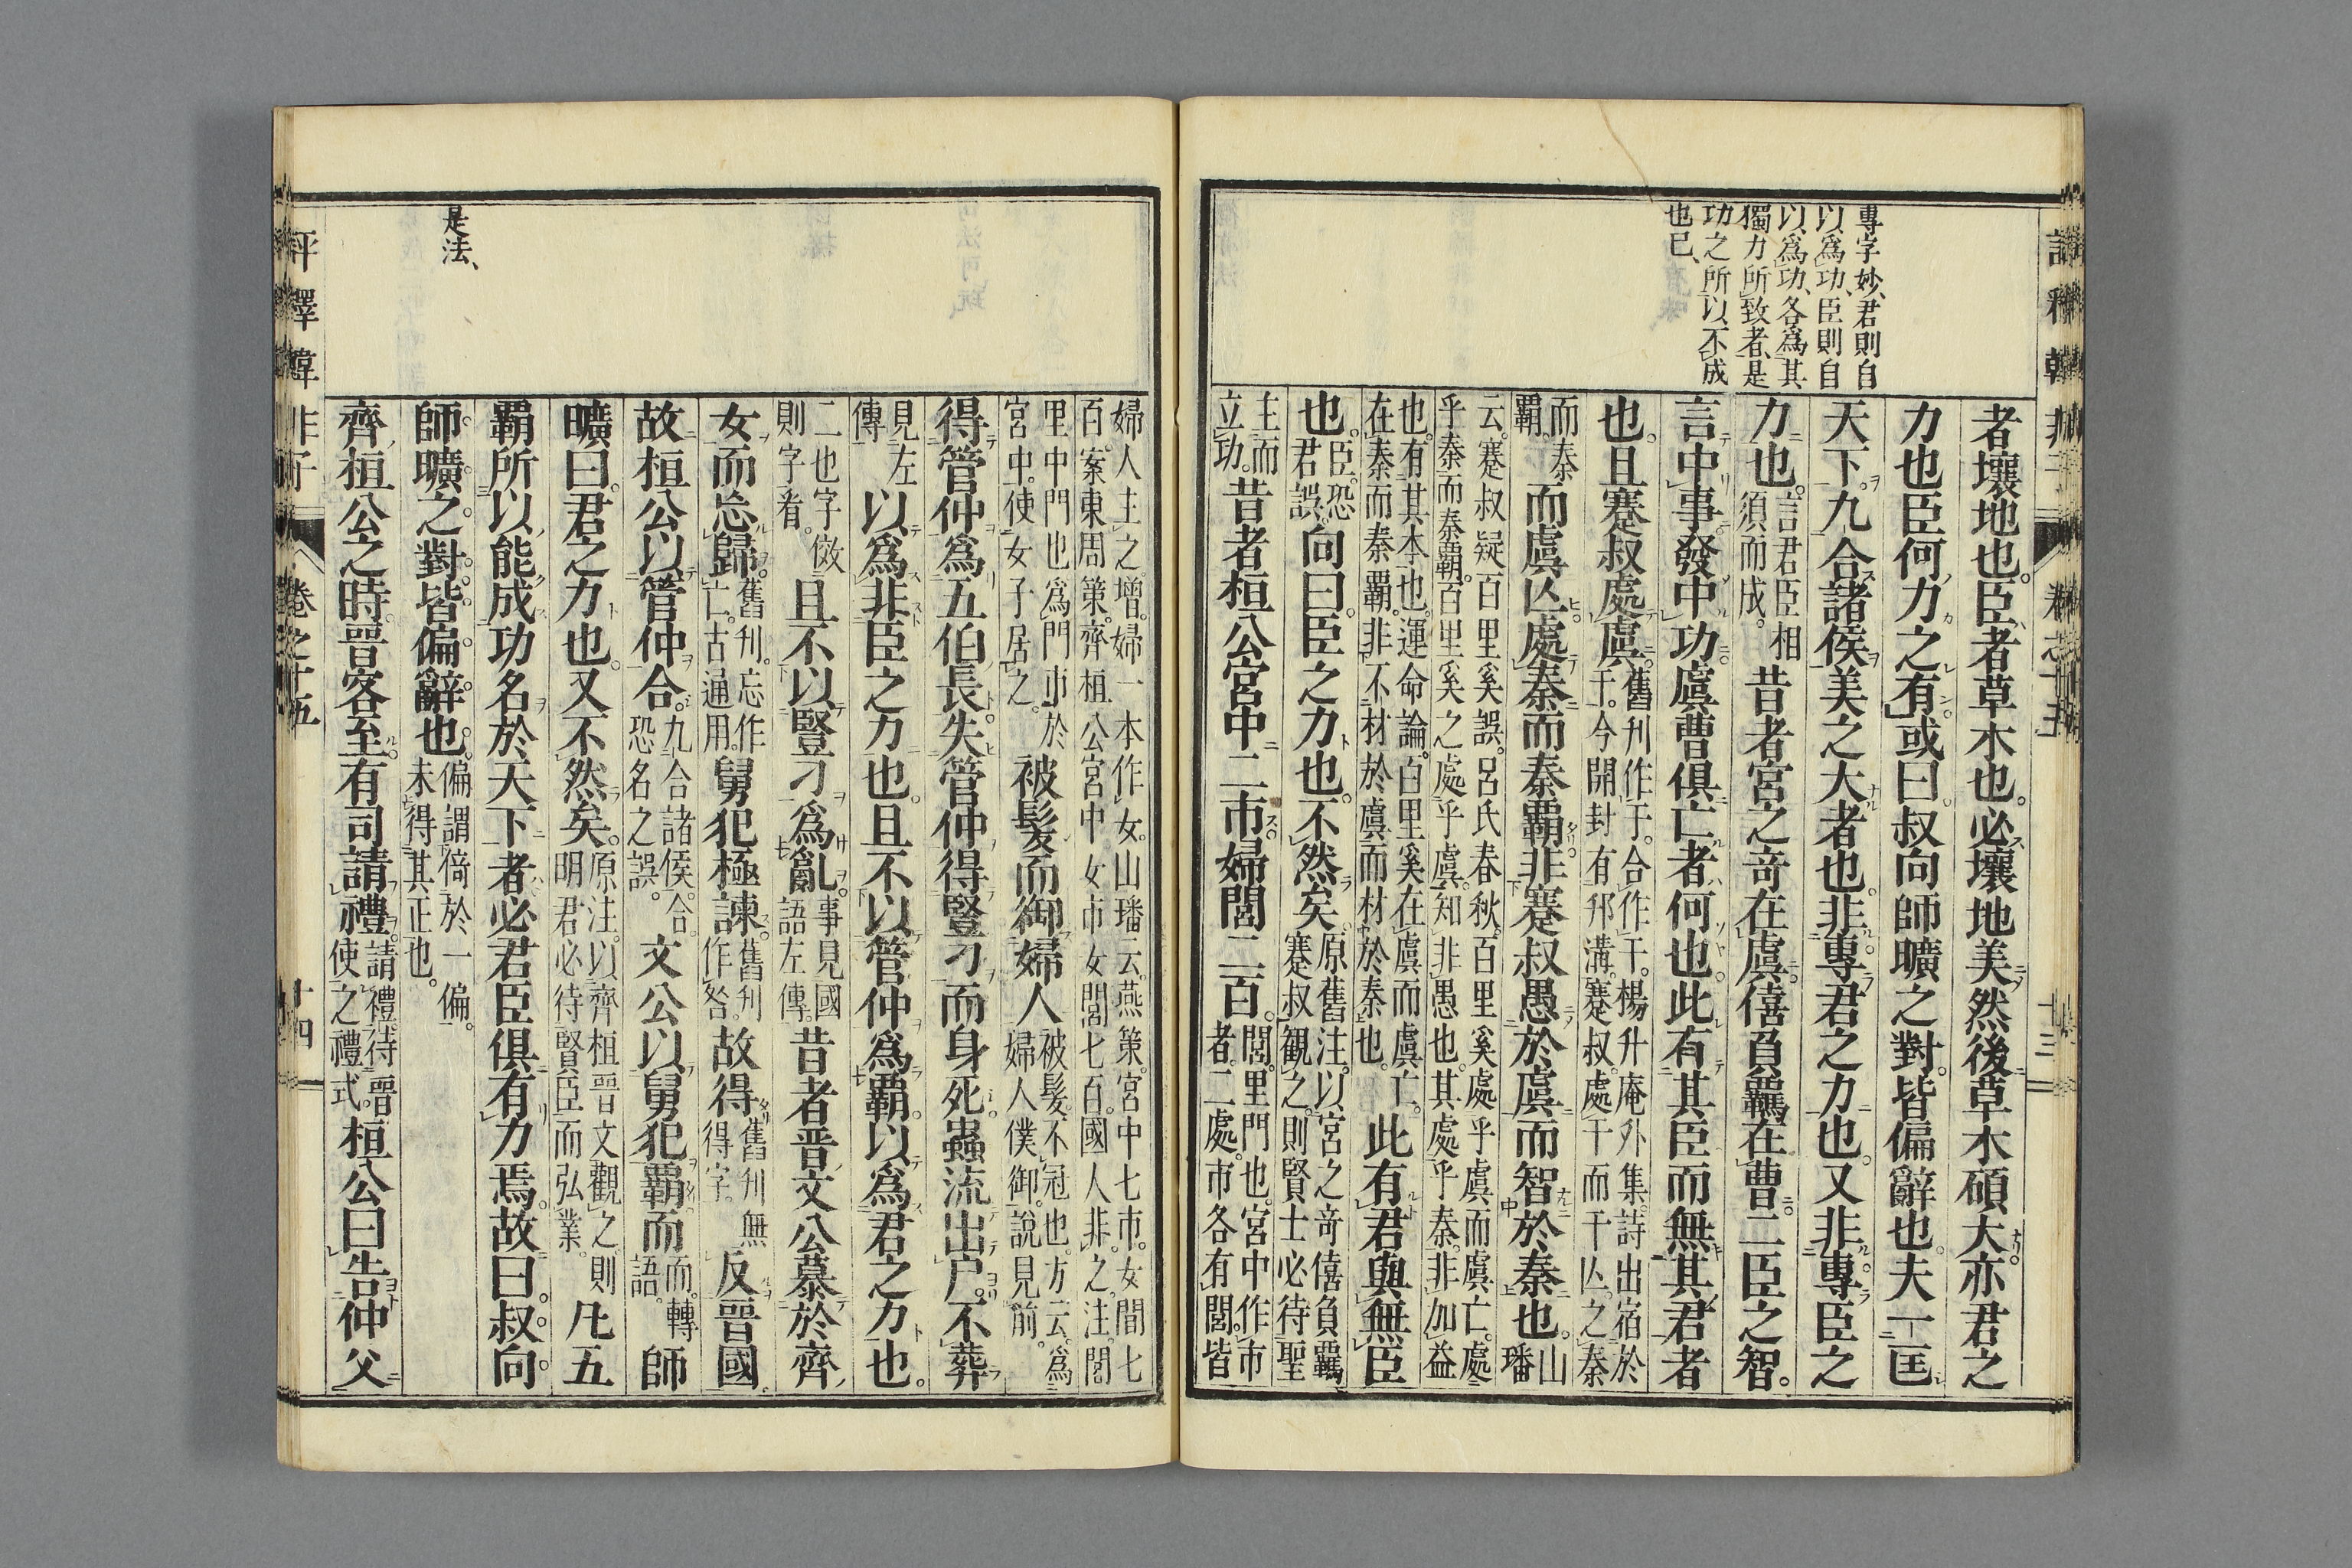 專字妙、君則自
以爲功、臣則自
以爲功、各爲其
獨力所致者、是
功之所以不成
也已、
者壤地也。臣者草木也。必壤地美然後草木碩大亦君之
力也臣何力之有或曰叔向師曠之對。皆偏辭也。夫一匡
天下。九合諸侯美之大者也。非專君之力也。又非專臣之
力也。言君臣相須而成。昔者宮之奇在虞僖負羈在曹二臣之智。
言中事發中功虞曹俱亡者何也。此有其臣而無其君者
也。且蹇叔處虞。舊刋作于。合作干。楊升庵外集。詩出宿於干。今開封有邗溝。蹇叔處干而干亾。之秦
而秦霸。而虞亾處秦而秦霸非蹇叔愚於虞而智於秦也。山璠
云。蹇叔疑百里奚誤。呂氏春秋。百里奚處乎虞而虞亡。處乎秦而秦霸。百里奚之處乎虞。知非愚也。其處乎秦。非加益
也。有其本也。運命論。百里奚在虞而虞亡。在秦而秦霸。非不材於虞而材於秦也。此有君與無臣
也。臣。恐君誤。向曰。臣之力也。不然矣。原舊注。以宮之奇僖負羈蹇叔觀之。則賢士必待聖
主而立功。昔者桓公宮中二市婦閭二百。閭。里門也。宮中作市者。二處。市各有閭。皆
是法、
婦人主之。增。婦一本作女。山璠云。燕策。宮中七市。女閭七百。案東周策。齊桓公宮中女市女閭七百。國人非之。注。閭
里中門也爲門市於宮中。使女子居之。被髮而御婦人被髮。不冠也。方云。爲婦人僕御。說見前。
得管仲爲五伯長失管仲得豎刁而身死蟲流出尸。不葬
見左傳以爲非臣之力也。且不以管仲爲霸。以爲君之力也。
二也字倣則字看。且不以豎刁爲亂。事見國語左傳。昔者晉文公慕於齊
女而忘歸。舊刋。忘作亡。古通用。舅犯極諫。舊刋作咎。故得舊刋無得字。反晉國。
故桓公以管仲合。九合諸侯。合。恐名之誤。文公以舅犯霸。而而。轉語。師
曠曰。君之力也。又不然矣。原注。以齊桓晉文觀之。則明君必待賢臣而弘業。凡五
霸所以能成功名於天下者必君臣俱有力焉。故曰。叔向
師曠之對。皆偏辭也。偏謂倚於一偏。未得其正也。
齊桓公之時。晉客至。有司請禮。請禮。待晉使之禮式。桓公曰告仲父
評釋韓非子
卷之十五
十四